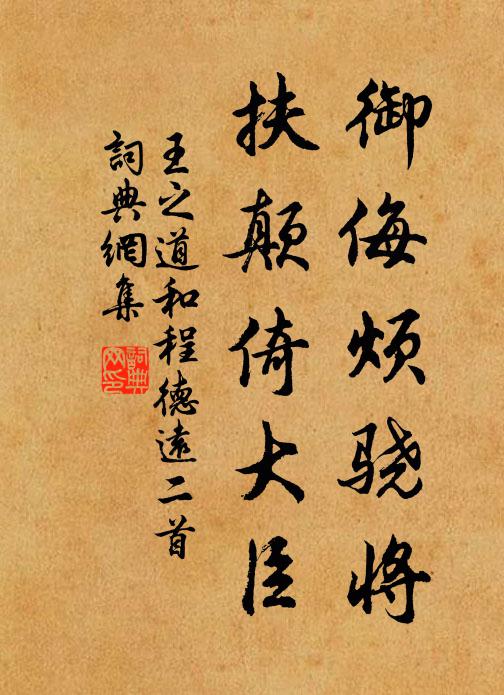 御侮烦骁将
扶颠倚大臣
王之道和程德遠二首
詞典網集
詞典网印